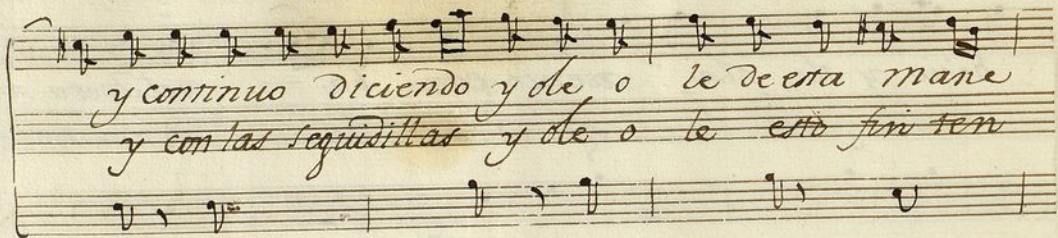 y continuo diciendo y ole o le de esta mane
y con las seguidillas y ole o le esto fin ten